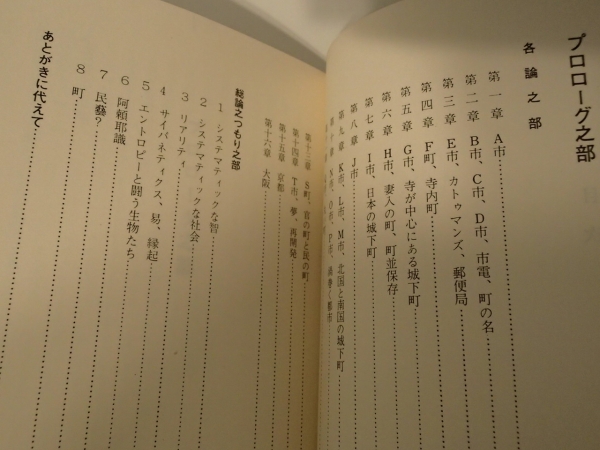 プロローグ之部
各論之部
第一章 A市
第二章 B市、C市、D市、市電、町の名
第三章 E市、カトゥマンズ、郵便局
第四章 F町、寺内町
第五章 G市、寺が中心にある城下町
第六章 H市、妻入の町、町並保存
第七章 I市、日本の城下町
第八章 J市
第九章 K市、L市、M市、北国と南国の城下町
N市、O市、P市
第十三章 S町、官の町と民の町
第十四章 T市、夢、再開発
第十五章 京都
第十六章 大阪
総論之つもり之部
1 システマティックな智
2 システマティックな社会
3 リアリティ
4 サイバネティクス、易、縁起
5 エントロピーと闘う生物たち
6 阿頼耶識
7 民藝?
8 町
あとがきに代えて